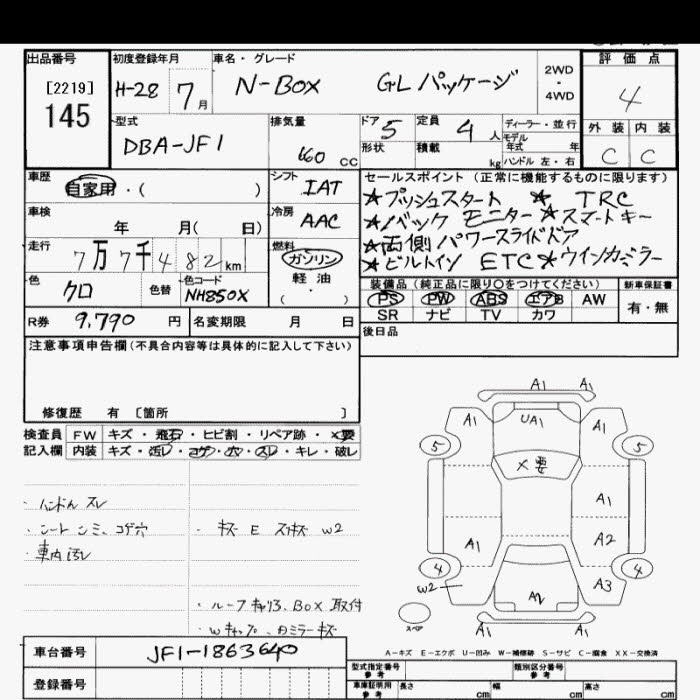 出品番号
[2219]
145
初度登録年月
H-28 7月
車名・グレード
N-BOX GLパッケージ
2WD
・
4WD
評価点
4
外装 内装
C C
型式
DBA-JF1
排気量
660 CC
ドア 5
形状
定員 4人
積載 kg
ディーラー・並行
モデル
年式 年
ハンドル 左・右
車歴
自家用・( )
シフト
IAT
車検
年 月( 日)
冷房
AAC
走行
7万7千482km
燃料
ガソリン
軽油
( ・ )
色
クロ
色替
色コード
NH850X
R券 9,790 円
名変期限 月 日
セールスポイント(正常に機能するものに限ります)
★プッシュスタート ★ TRC
★バックモニター★スマートキー
★両側パワースライドドア
★ビルトイン ETC★ウインカーミラー
装備品(純正品に限り○をつけてください)
PS PW ABS エアB AW
SR ナビ TV カワ
新車保証書
有・無
後日品
注意事項申告欄(不具合内容等は具体的に記入して下さい)
修復歴 有 [箇所 ]
検査員 FW キズ・飛石・ヒビ割・リペア跡・×要
記入欄 内装 キズ・汚レ・コゲ・穴・スレ・キレ・破レ
・ハンドル スレ
・シート シミ、コゲ穴
・車内汚レ
・キズ E スリキズ W2
・ルーフキャリア、BOX 取付
・Wキャップ、
A1 A1
A1 UA1 A1
5 5
×要
A1
A1 A2
4 4
W2 A2 A3
スペア
A1 A1
A-キズ E-エクボ U-凹み W-補修跡 S-サビ C-腐食 XX-交換済
車台番号 JF1-1863640
登録番号
型式指定番号
参考
類別区分番号
参考
車庫証明用
参考
長さ cm 幅 cm 高さ cm